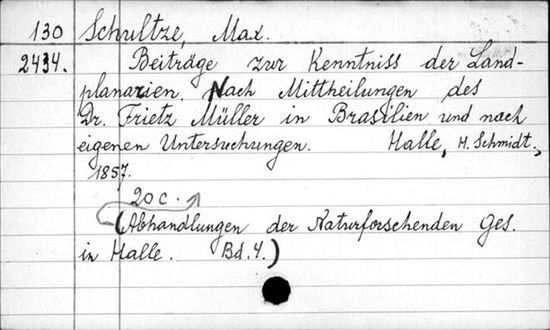 130 Schultze, Max.
2434. Beiträge zur Kenntniss der Land-
planarien. Nach Mittheilungen des
Dr. Frietz Müller in Brasilien und nach
eigenen Untersuchungen. Halle, H. Schmidt.,
1857.
20 c.
(Abhandlungen der Naturforschenden Ges.
in Halle. Bd. 4.)